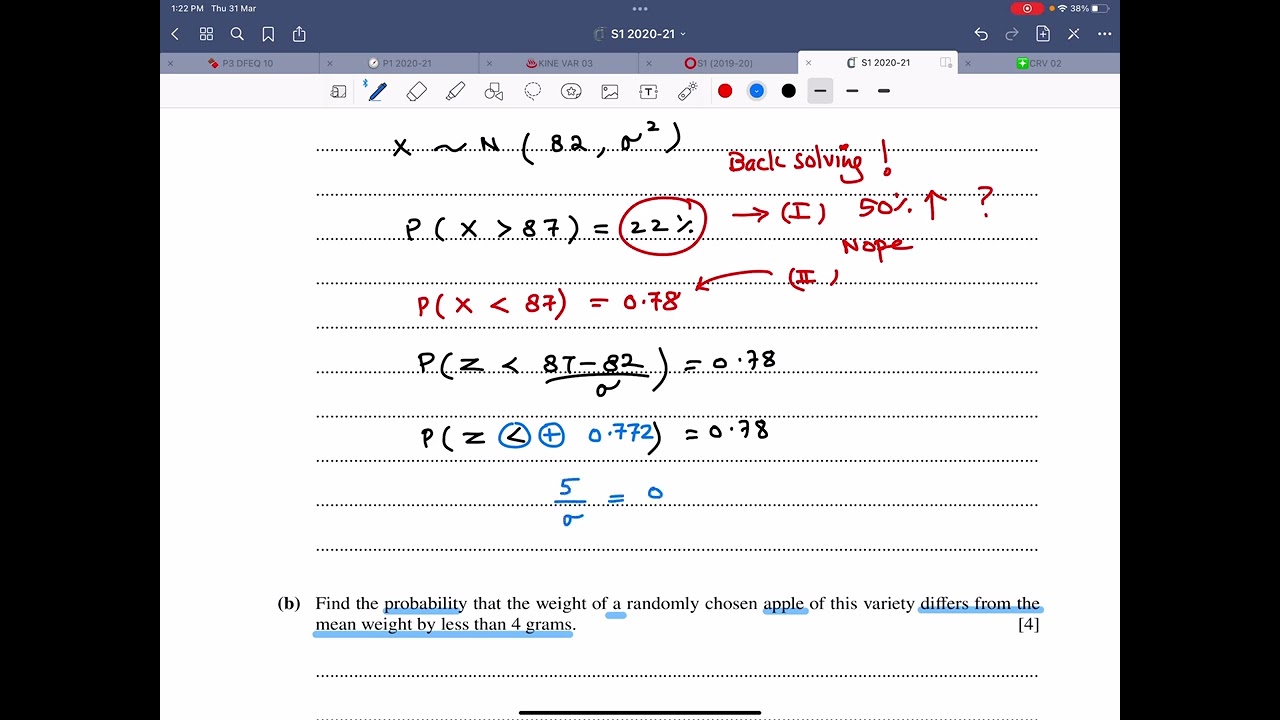 1:22 PM Thu 31 Mar
38%
S1 2020-21
P3 DFEQ 10
P1 2020-21
KINE VAR 03
S1 (2019-20)
S1 2020-21
CRV 02
X ~ N ( 82 , σ² )
Back solving !
P ( X > 87 ) = 22% → (I) 50% ↑ ?
Nope
(II)
P( X < 87 ) = 0.78
P( Z < 87 - 82 / σ ) = 0.78
P( Z < + 0.772 ) = 0.78
5 / σ = 0
(b) Find the probability that the weight of a randomly chosen apple of this variety differs from the
mean weight by less than 4 grams. [4]